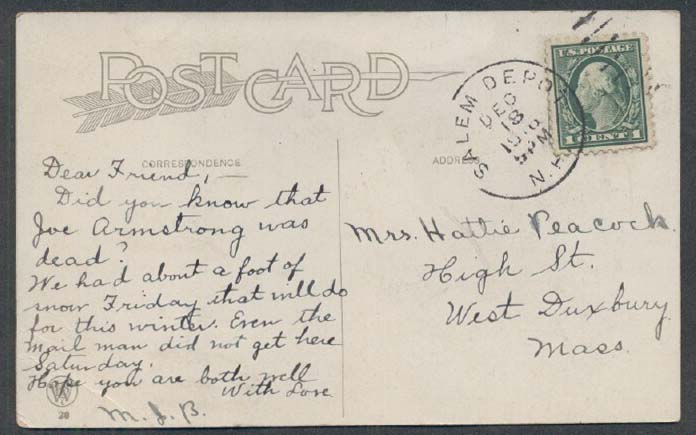 POST CARD
CORRESPONDENCE
ADDRESS
SALEM DEPOT
N.H.
DEC
18
5 PM
U.S. POSTAGE
1 CENT 1
Dear Friend,—
Did you know that
Joe Armstrong was
dead?
We had about a foot of
snow Friday that will do
for this winter. Even the
mail man did not get here
Saturday.
Hope you are both well
With Love
M.J.B.
Mrs. Hattie Peacock.
High St.
West Duxbury
Mass.
28